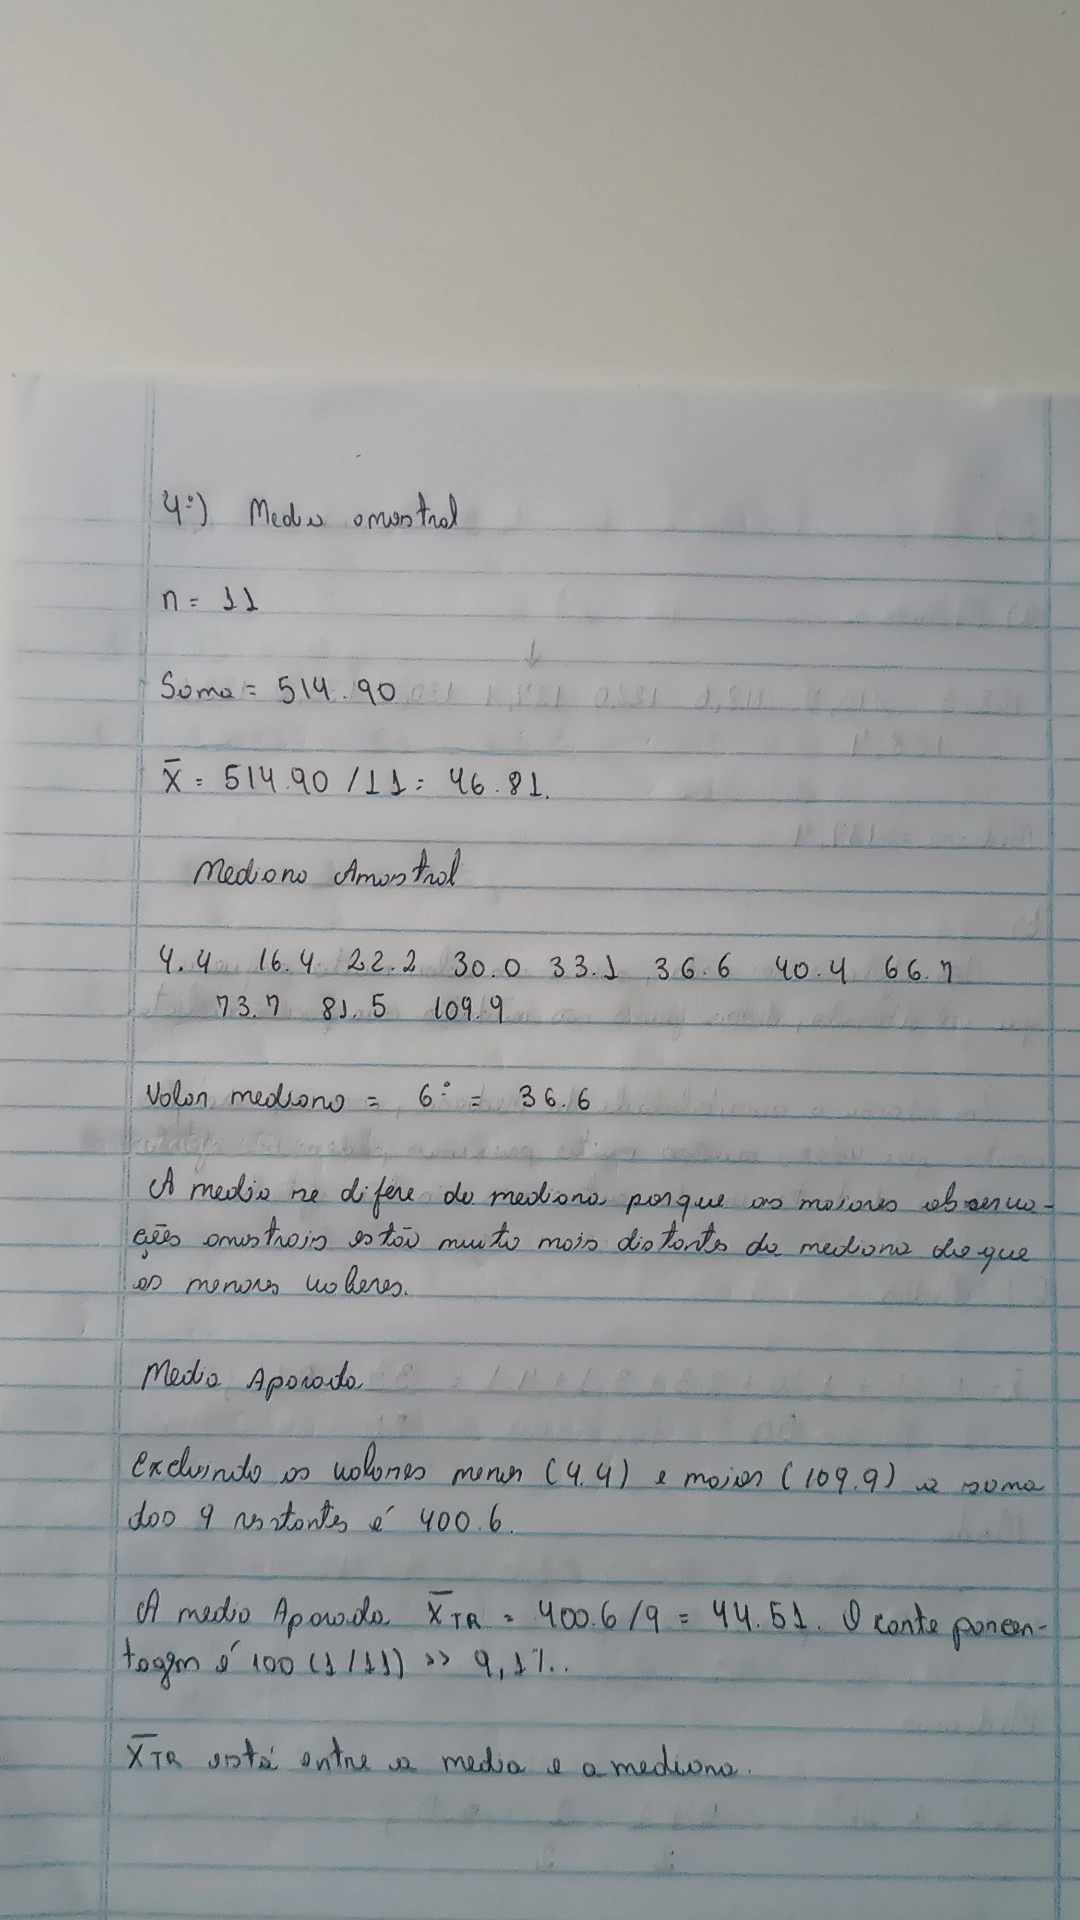 4°) Media amostral
n = 11
Soma = 514.90
X̄ = 514.90 / 11 = 46.81.
Mediana Amostral
4.4 16.4 22.2 30.0 33.1 36.6 40.4 66.7
73.7 81.5 109.9
Valor mediano = 6° = 36.6
A media se difere da mediana porque as maiores observa-
ções amostrais estão muito mais distantes da mediana do que
os menores valores.
Media Aparada
Excluindo os valores menor (4.4) e maior (109.9) a soma
dos 9 restantes é 400.6.
A media Aparada X̄TR = 400.6/9 = 44.51. O corte porcen-
tagem é 100 (1/11) >> 9,1%.
X̄TR está entre a media e a mediana.